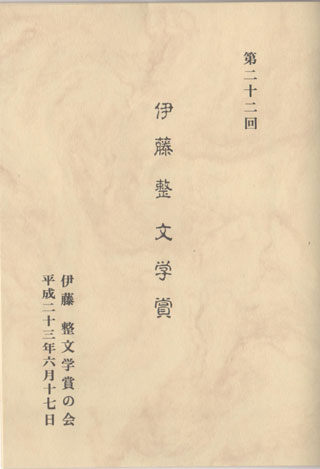 第二十二回
伊藤整文学賞
伊藤 整文学賞の会
平成二十三年六月十七日